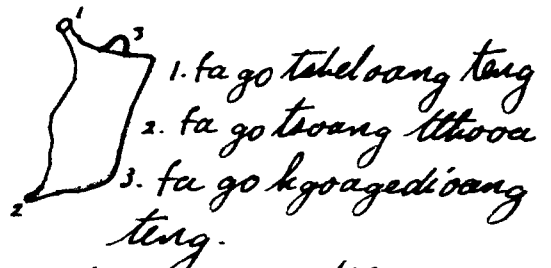 1
3
1. fa go tsheloang teng
2. fa go tsoang
3. fa go kgoagedioang
2
teng.